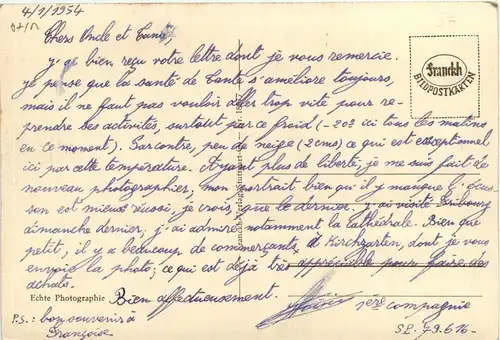 4/1/1954
Chers Oncle et Tante,
j'ai bien reçu votre lettre dont je vous remercie.
je pense que la santé de Tante s'améliore toujours,
mais il ne faut pas vouloir aller trop vite pour re-
prendre ses activités, surtout par ce froid (-20° ici tous les matins
en ce moment). Par contre, peu de neige (2 cms) ce qui est exceptionnel
ici par cette température. Ayant plus de liberté, je me suis fait de
nouveau photographier; mon portrait bien qu'il y manque l'écus-
son est mieux réussi, je crois, que le dernier. j'ai visité Fribourg
dimanche dernier; j'ai admiré notamment la cathédrale. Bien que
petit, il y a beaucoup de commerçants, à Kirchzarten, dont je vous
envoie la photo; ce qui est déjà très appréciable pour faire des
achats.
Bien affectueusement.
1ère compagnie
SP. 79.616
P.S.: bon souvenir à
Françoise
Echte Photographie
Franckh
BILDPOSTKARTEN